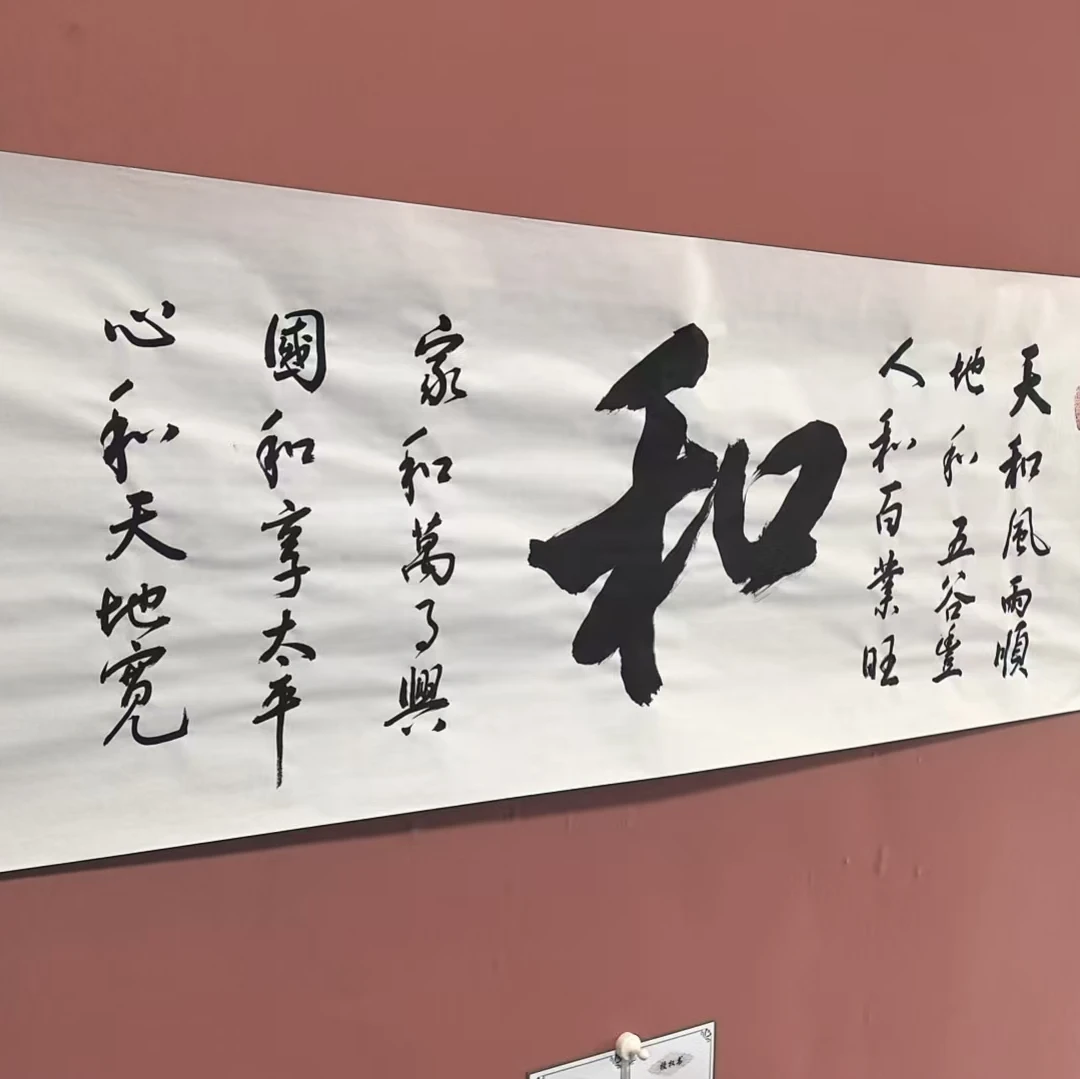 天和風雨順
地和五谷豐
人和百業旺
和
家和萬事興
國和享太平
心和天地寬
授权书